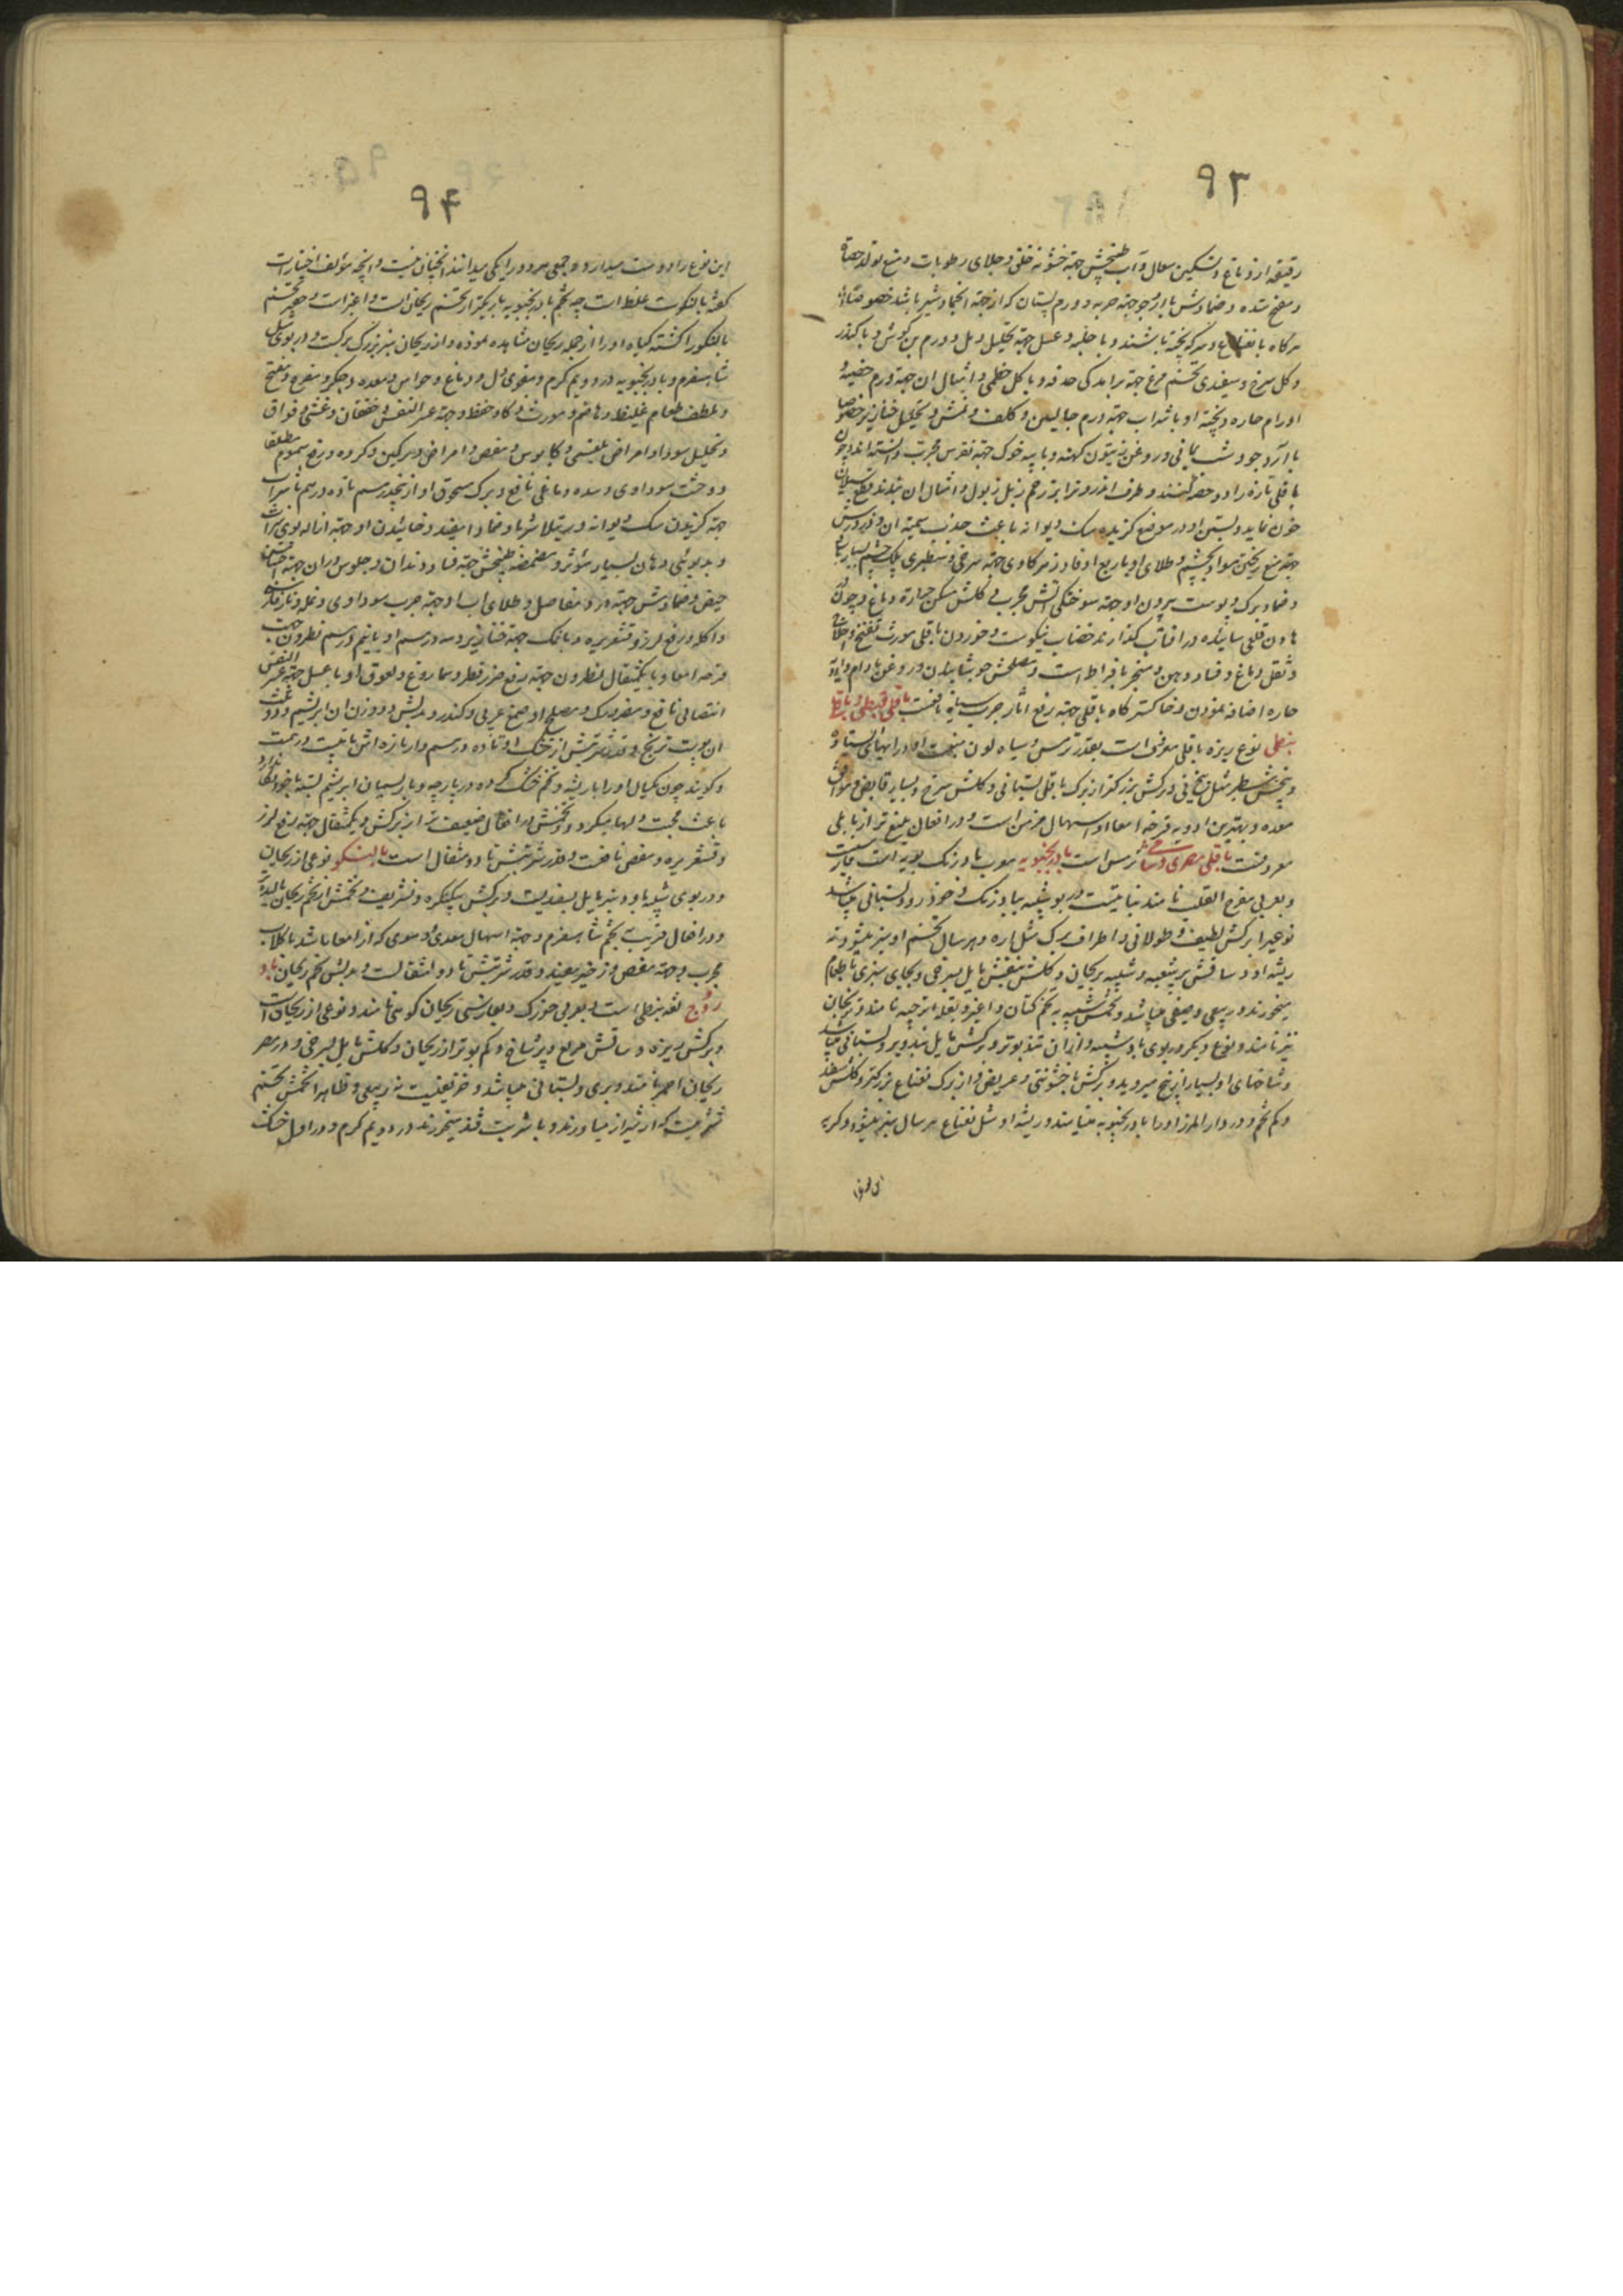 ۹۳
رقیقه از دماغ و تسکین سعال و آب طبخش جهة خشونة حلق و جلای رطوبات و منع تولد حصاة
و مفتح سده و ضمادش با آرد جو جهة ضربه و ورم پستان که از جهة انجماد شیر باشد خصوصا
هرگاه با نعناع و سرکه پخته باشند و با حلبه و عسل جهة تحلیل دمل و ورم بن گوش و با کندر
و گل سرخ و سفیدی تخم مرغ جهة برآمدگی حدقه و با گل خطمی و امثال آن جهة ورم خصیه و
اورام حاره و پخته او با شراب جهة ورم حالبین و کلف و نمش و تحلیل خنازیر خصوصا
با آرد جو و شب یمانی و روغن زیتون کهنه و با پیه خوک جهة نقرس مجرب دانسته اند و چون
باقلی تازه را دو حصه کنند و طرف اندرون را بر زخم زلو و امثال آن بندند قطع سیلان
خون نماید و بستن او در موضع گزیده سک دیوانه باعث جذب سمیة آن و
جهة منع ریختن مواد بچشم و طلای او با
و ضماد برک و پوست بیرون او جهة سوختگی آتش مجرب و گلش مسکن حرارة دماغ و چون در
هاون قلعی سائیده در آفتاب گذارند خضاب نیکوست و خوردن باقلی مورث نفخ و اختلاط
و ثقل دماغ و فساد ذهن و مبخر بافراط است و مصلحش جوشانیدن در روغن بادام و ادویه
حاره اضافه نمودن و خاکستر کاه باقلی جهة رفع آثار جرب سیاه نافعست باقلی قبطی و باقلی
نبطی نوع ریزه باقلی معروف است بقدر ترمس و سیاه لون منبت او در آبهای ایستاده
و بیخش سطبر مثل نی و برکش بزرکتر از برک باقلی بستانی و گلش سرخ و بسیار قابض و موافق
معده و بهترین ادویه قرحه امعا و اسهال مزمن است و در افعال بلیغ تر از باقلی
معروفست باقلی مصری و شامی ترمس است بادرنجبویه معرب بادرنک بویه است
و بعربی مفرح القلب نامند نباتیست در بو شبیه ببادرنک و خودرو و بستانی میباشد
نوعی را برکش لطیف و طولانی و اطراف برک مثل اره و هر سال تخم او سبز میشود نه
ریشه او و ساقش پر شعبه و شبیه بریحان و گلش بنفش مایل بسرخی و بجای سبزی با طعام
میخورند و ربیعی و صیفی میباشد و تخمش شبیه به تخم کتان و اغبر و بقله اترجیه نامند و ترنجان
نیز نامند و نوع دیکر در بوی باو شبیه و از آن تند بوتر و برکش مایل بتدویر و بستانی میباشد
و شاخهای او بسیار از بیخ میروید و برکش با خشونتی و عریض و از برک نعناع بزرکتر و گلش سفید
و کم تخم و در دارالمرز او را بادرنجبویه مینامند و ریشه او مثل نعناع هر سال سبز میشود و گربه
این نوع
۹۴
این نوع را دوست میدارد و جمعی هر دو را یکی میدانند انچنان نیست و آنچه مؤلف اختیارات
گفته بالنکوست غلط است چه تخم بادرنجبویه باریکتر از تخم ریحان است و اغبر است و حقیر تخم
بالنکو را کشته گیاه او را از جمله ریحان مشاهده نموده و از ریحان سبز بزرک برکست و در بوی مثل
شاهسفرم و بادرنجبویه در دویم گرم و مقوی دل و دماغ و حواس و معده و جگر و مفرح و مفتح
و ملطف طعام غلیظ و هاضم و مورث ذکاء و حفظ و جهة عسر النفس و خفقان و غشی و فواق
و تحلیل سودا و امراض بلغمی و کابوس و مغص و امراض ورکین و گرده و رفع سموم مطلقا
و وحشت سوداوی و سده دماغی نافع و برک مسحوق او از پنج درم تا ده درم با شراب
جهة گزیدن سک دیوانه و رتیلا شربا و ضمادا مفید و خائیدن او جهة ازاله بوی شراب
و بدبوئی دهان بسیار مؤثر و مضمضه طبخش جهة فساد دندان و جلوس در آن جهة احتباس
حیض و ضمادش جهة درد مفاصل و طلای آب او جهة جرب سوداوی و نمله و نار فارسی
و آکله و رفع لرز و قشعریره و با نمک جهة خنازیر و سه درم او با نیم درم نطرون جهت
قرحه امعا و با یکمثقال نطرون جهة رفع ضرر فطر و سماروغ و لعوق او با عسل جهة عسر النفس
انتصابی نافع و مضر ورک و مصلح او صمغ عربی و کندر و بدلش دو وزن آن ابریشم و دو ثلث
آن پوست ترنج و قدر شربتش از خشک او تا ده درم و از تازه اش تا بیست درمست
و گویند چون یکسال او را با ریشه و تخم خشک کرده در پارچه و با ریسمان ابریشم بسته با خود نگاه دارند
باعث محبت دلها میکردد و تخمش در افعال ضعیف تر از برکش و یکمثقال جهة رفع لرز
و قشعریره و مغص نافعست و قدر شربتش تا دو مثقال است بالنکو نوعی از ریحان
و در بوی شبیه باو و سبز مایل بسفیدیست و برکش بیکنکره و تشریف و تخمش از تخم ریحان بالیده تر
و در افعال قریب به تخم شاهسفرم و جهة اسهال معدی و دموی که از امعا باشد با گلاب
مجرب و جهة مغص و زحیر مفید و قدر شربتش تا دو مثقالست و بدلش تخم ریحان باد
روج لغة نبطی است و بعربی حوک و بفارسی ریحان کوهی نامند و نوعی از ریحان است
و برکش ریزه و ساقش مربع و پر شاخ و کم بوتر از ریحان و گلش مایل بسرخی و در مصر
ریحان احمر نامند و بری و بستانی میباشد و خریفیست نه ربیعی و ظاهرا تخمش تخم
شربتیست که از شیراز میاورند و با شربت قند میخورند در دویم گرم و در اول خشک